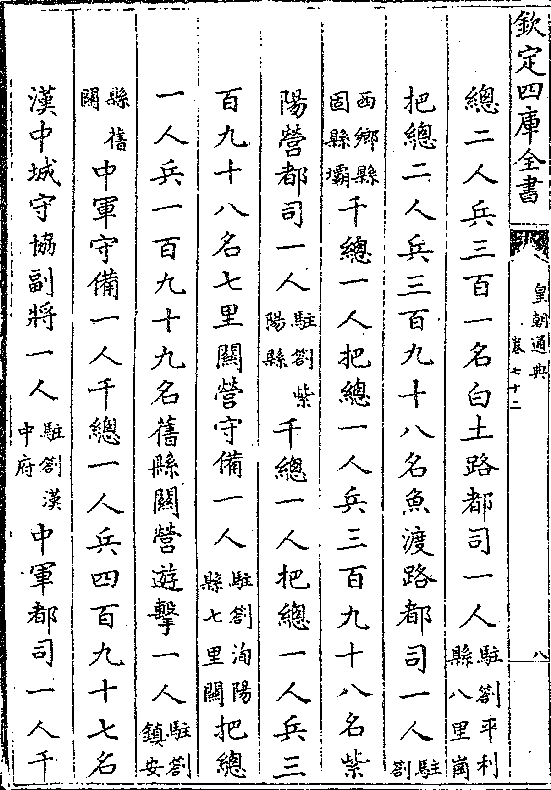 欽定四庫全書
皇朝通典
卷七十二
八
總二人兵三百一名白土路都司一人駐劄平利縣八里崗
把總二人兵三百九十八名魚渡路都司一人駐劄
西鄉縣固縣壩千總一人把總一人兵三百九十八名紫
陽營都司一人駐劄紫陽縣千總一人把總一人兵三
百九十八名七里關營守備一人駐劄洵陽縣七里關把總
一人兵一百九十九名舊縣關營遊擊一人駐劄鎮安
縣舊關中軍守備一人千總一人兵四百九十七名
漢中城守協副將一人駐劄漢中府中軍都司一人千